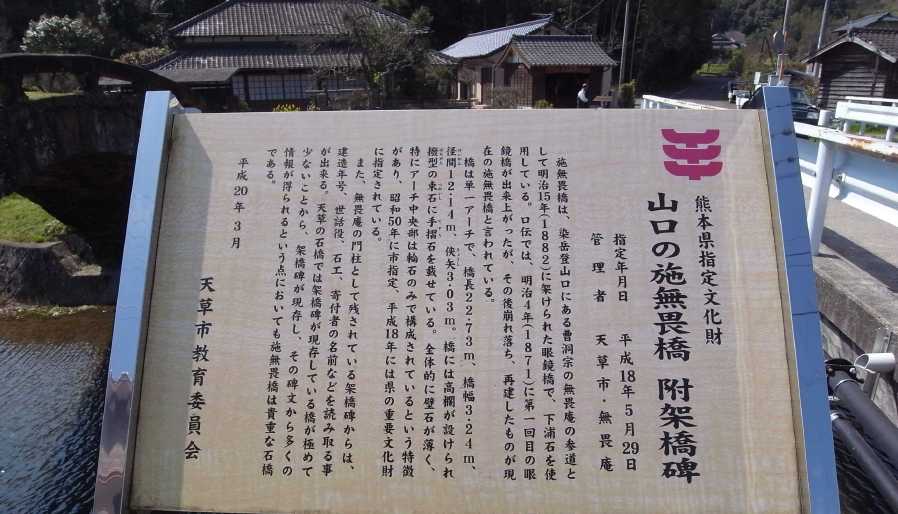 熊本県指定文化財
山口の施無畏橋 附架橋碑
指定年月日 平成18年5月29日
管理者 天草市・無畏庵
施無畏橋は、染岳登山口にある曹洞宗の無畏庵の参道と
して明治15年(1882)に架けられた眼鏡橋で、下浦石を使
用している。口伝では、明治4年(1871)に第一回目の眼
鏡橋が出来上がったが、その後崩れ落ち、再建したものが現
在の施無畏橋と言われている。
橋は単一アーチで、橋長22・73m、橋幅3・24m、
径間12・14m、拱矢3・03m。橋には高欄が設けられ
撥型の束石に手摺石を載せている。全体的に壁石が薄く、
特にアーチ中央部は輪石のみで構成されているという特徴
があり、昭和50年に市指定、平成18年には県の重要文化財
に指定されている。
また、無畏庵の門柱として残されている架橋碑からは、
建造年号、世話役、石工、寄付者の名前などを読み取る事
が出来る。天草の石橋では架橋碑が現存している橋が極めて
少ないことから、架橋碑が現存し、その碑文から多くの
情報が得られるという点においても施無畏橋は貴重な石橋
である。
平成20年3月
天草市教育委員会